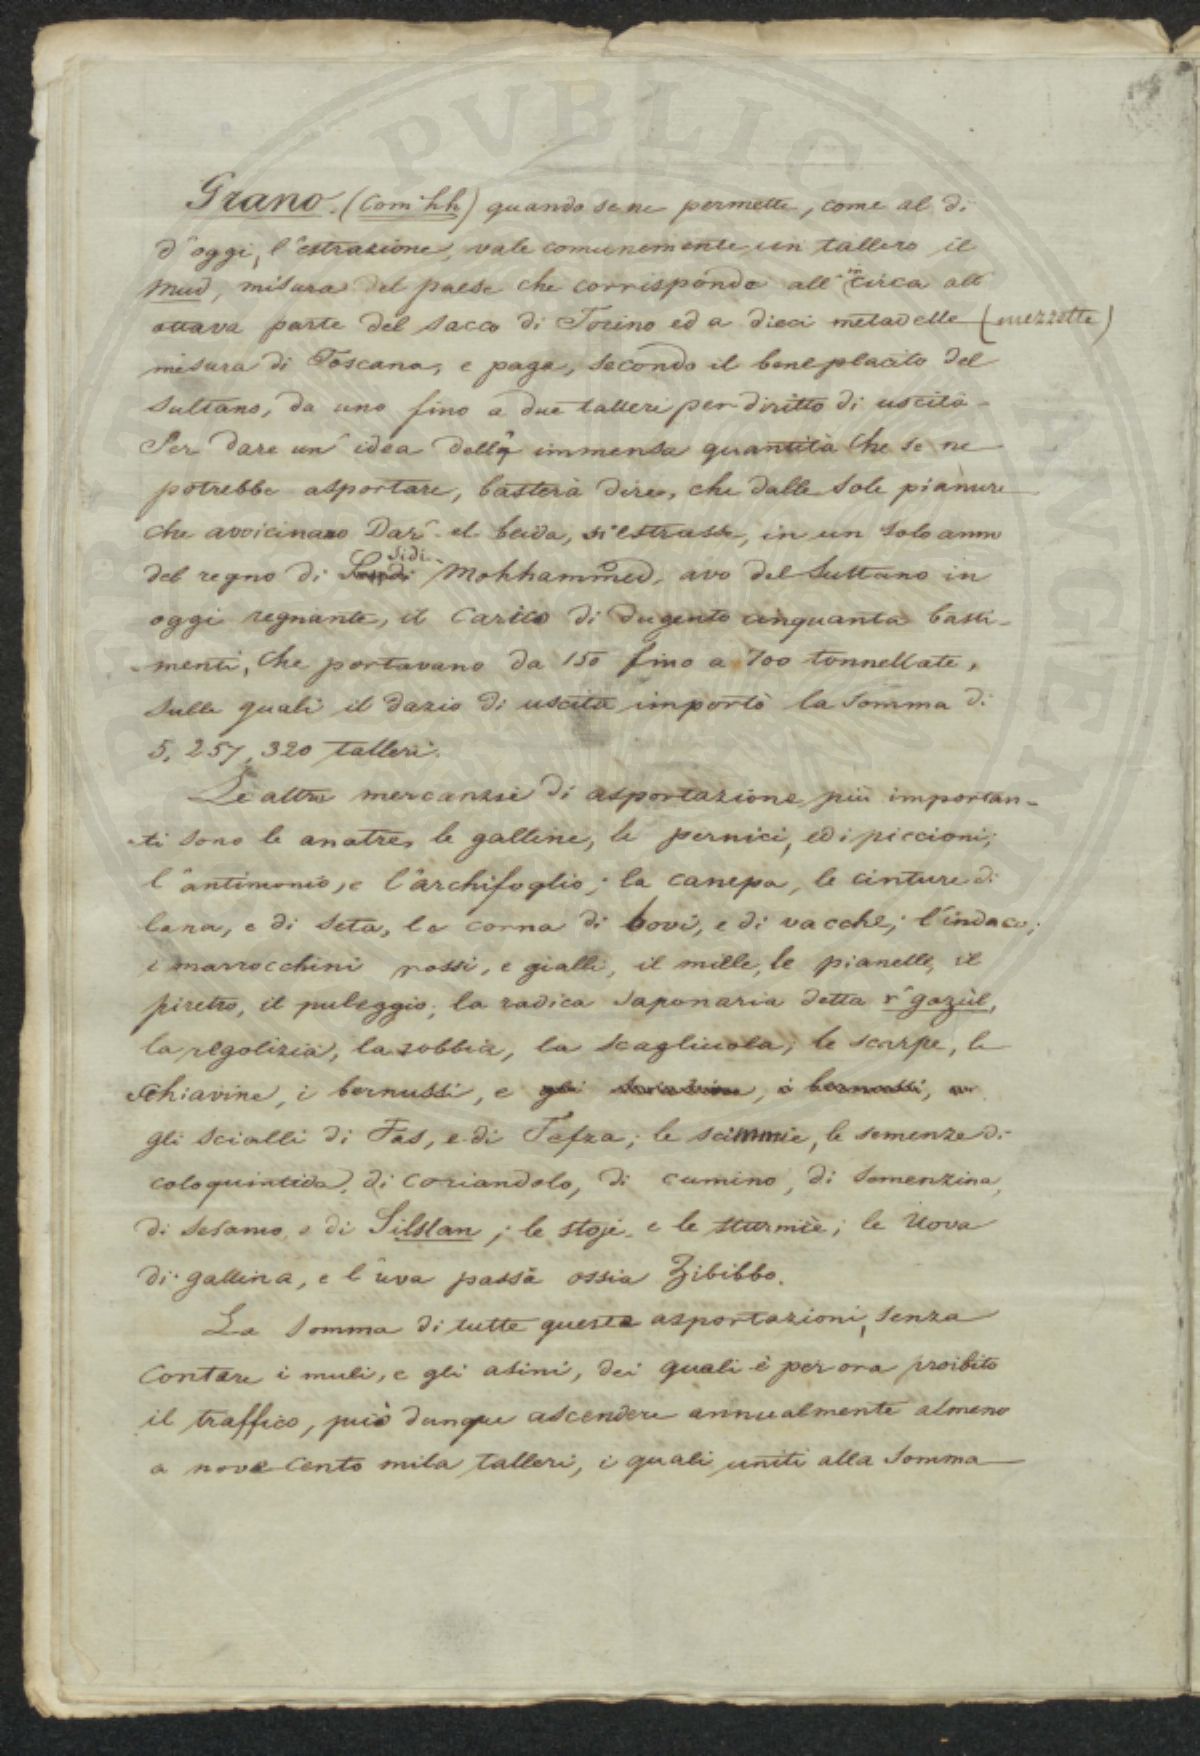 Grano. (Com'hh) quando se ne permette, come al dì
d'oggi, l'estrazione, vale comunemente un tallero il
Mud, misura del paese che corrisponde all' in circa all'
ottava parte del sacco di Torino ed a dieci metadelle (mezzette)
misura di Toscana, e paga, secondo il beneplacito del
Sultano, da uno fino a due talleri per diritto di uscita.
Per dare un' idea della immensa quantità che se ne
potrebbe asportare, basterà dire, che dalle sole pianure
che avvicinano Dar' el beida, si estrasse, in un solo anno
del regno di Sidi Mohhammed, avo del Sultano in
oggi regnante, il carico di dugento cinquanta basti-
-menti, che portavano da 150 fino a 700 tonnellate,
sulle quali il dazio di uscita importò la somma di
5,257,320 talleri.
Le altre mercanzie di asportazione più importan-
-ti sono le anatre, le galline, le pernici, ed i piccioni;
l'antimonio, e l'archifoglio; la canepa, le cinture di
lana, e di seta, le corna di bovi, e di vacche; l'indaco;
i marrocchini rossi, e gialli, il miele, le pianelle, il
piretro, il puleggio; la radica saponaria detta r'gazùl,
la regolizia, la robbia, la scagliuola; le scarpe, le
schiavine, i bernussi, e
gli scialli di Fas, e di Tafza; le scimmie, le semenze di
coloquintida, di coriandolo, di cumino, di semenzina,
di sesamo e di Silslan; le stoje e le sturmiè; le uova
di gallina, e l'uva passa ossia Zibibbo.
La somma di tutte queste asportazioni, senza
contare i muli, e gli asini, dei quali è per ora proibito
il traffico, può dunque ascendere annualmente almeno
a nove cento mila talleri, i quali uniti alla somma